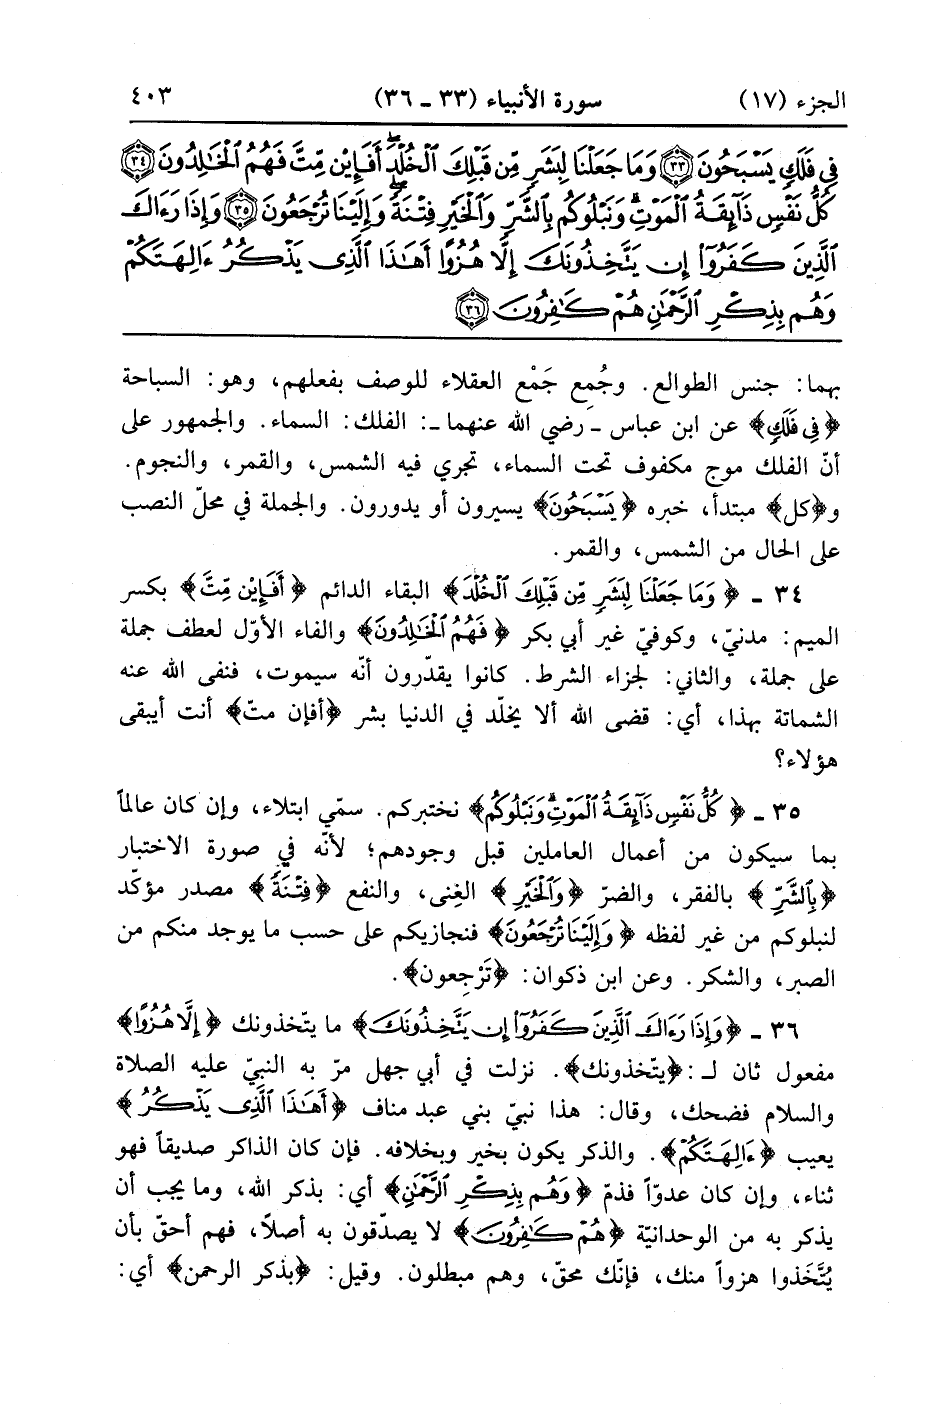 الجزء (١٧) سورة الأنبياء (٣٣ - ٣٦) ٤٠٣
فِى فَلَكٍ يَسْبَحُونَ ٣٣ وَمَا جَعَلْنَا لِبَشَرٍ مِّن قَبْلِكَ ٱلْخُلْدَ أَفَإِيْن مِّتَّ فَهُمُ ٱلْخَٰلِدُونَ ٣٤
كُلُّ نَفْسٍ ذَآئِقَةُ ٱلْمَوْتِ وَنَبْلُوكُم بِٱلشَّرِّ وَٱلْخَيْرِ فِتْنَةً وَإِلَيْنَا تُرْجَعُونَ ٣٥ وَإِذَا رَءَاكَ
ٱلَّذِينَ كَفَرُوٓا۟ إِن يَتَّخِذُونَكَ إِلَّا هُزُوًا أَهَٰذَا ٱلَّذِى يَذْكُرُ ءَالِهَتَكُمْ
وَهُم بِذِكْرِ ٱلرَّحْمَٰنِ هُمْ كَٰفِرُونَ ٣٦
بهما: جنس الطوالع. وجُمِع جَمْع العقلاء للوصف بفعلهم، وهو: السباحة
﴿فِى فَلَكٍ﴾ عن ابن عباس - رضي الله عنهما -: الفلك: السماء. والجمهور على
أنّ الفلك موج مكفوف تحت السماء، تجري فيه الشمس، والقمر، والنجوم.
و﴿كل﴾ مبتدأ، خبره ﴿يَسْبَحُونَ﴾ يسيرون أو يدورون. والجملة في محلّ النصب
على الحال من الشمس، والقمر.
٣٤ - ﴿وَمَا جَعَلْنَا لِبَشَرٍ مِّن قَبْلِكَ ٱلْخُلْدَ﴾ البقاء الدائم ﴿أَفَإِيْن مِّتَّ﴾ بكسر
الميم: مدنيّ، وكوفيّ غير أبي بكر ﴿فَهُمُ ٱلْخَٰلِدُونَ﴾ والفاء الأوّل لعطف جملة
على جملة، والثاني: لجزاء الشرط. كانوا يقدّرون أنّه سيموت، فنفى الله عنه
الشماتة بهذا، أي: قضى الله ألا يخلّد في الدنيا بشر ﴿أفإن متّ﴾ أنت أيبقى
هؤلاء؟
٣٥ - ﴿كُلُّ نَفْسٍ ذَآئِقَةُ ٱلْمَوْتِ وَنَبْلُوكُم﴾ نختبركم. سمّي ابتلاء، وإن كان عالماً
بما سيكون من أعمال العاملين قبل وجودهم؛ لأنّه في صورة الاختبار
﴿بِٱلشَّرِّ﴾ بالفقر، والضرّ ﴿وَٱلْخَيْرِ﴾ الغِنى، والنفع ﴿فِتْنَةً﴾ مصدر مؤكّد
لنبلوكم من غير لفظه ﴿وَإِلَيْنَا تُرْجَعُونَ﴾ فنجازيكم على حسب ما يوجد منكم من
الصبر، والشكر. وعن ابن ذكوان: ﴿تَرْجِعون﴾.
٣٦ - ﴿وَإِذَا رَءَاكَ ٱلَّذِينَ كَفَرُوٓا۟ إِن يَتَّخِذُونَكَ﴾ ما يتّخذونك ﴿إِلَّا هُزُوًا﴾
مفعول ثان لـ: ﴿يتّخذونك﴾. نزلت في أبي جهل مرّ به النبيّ عليه الصلاة
والسلام فضحك، وقال: هذا نبيّ بني عبد مناف ﴿أَهَٰذَا ٱلَّذِى يَذْكُرُ﴾
يعيب ﴿ءَالِهَتَكُمْ﴾. والذكر يكون بخير وبخلافه. فإن كان الذاكر صديقاً فهو
ثناء، وإن كان عدوّاً فذمّ ﴿وَهُم بِذِكْرِ ٱلرَّحْمَٰنِ﴾ أي: بذكر الله، وما يجب أن
يذكر به من الوحدانيّة ﴿هُمْ كَٰفِرُونَ﴾ لا يصدّقون به أصلاً، فهم أحقّ بأن
يُتَّخَذوا هزواً منك، فإنّك محقّ، وهم مبطلون. وقيل: ﴿بذكر الرحمن﴾ أي: